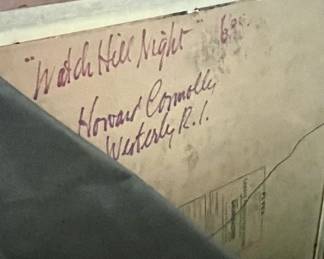 "Watch Hill Night"
Howard Connolly
Westerly R.I.